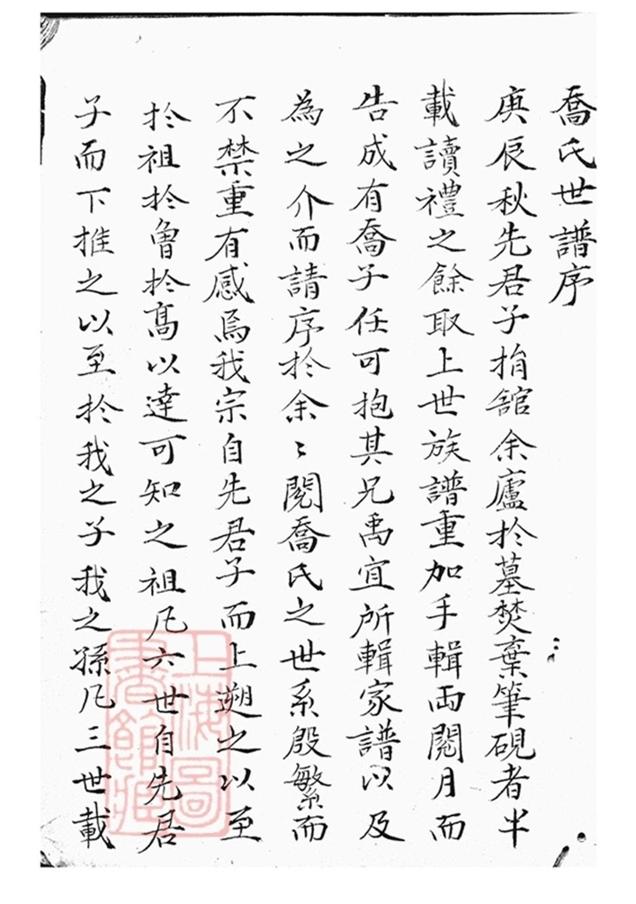 喬氏世譜序
庚辰秋先君子捐舘余廬於墓焚棄筆硯者半
載讀禮之餘取上世族譜重加手輯兩閱月而
告成有喬子任可抱其兄禹宜所輯家譜以及
為之介而請序於余〻閱喬氏之世系殷繁而
不禁重有感焉我宗自先君子而上遡之以至
於祖於魯於髙以達可知之祖凡六世自先君
子而下推之以至於我之子我之孫凡三世載
上海圖書館藏